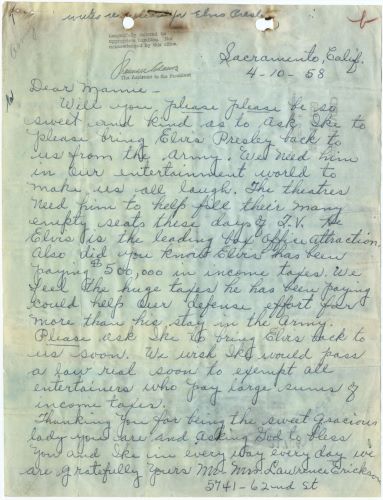 writes re release for Elvis Presley
Respectfully referred to
appropriate handling. Not
acknowledged by this office.
The Assistant to the President
Sacramento, Calif.
4-10-58
Dear Mamie -
Will you please please be so
sweet and kind as to ask Ike to
please bring Elvis Presley back to
us from the Army. We need him
in our entertainment world to
make us all laugh. The theatres
need him to help fill their many
empty seats these days of T.V. 
Elvis is the leading box office attraction
Also did you know Elvis has been
paying $500,000 in income taxes. We
feel the huge taxes he has been paying
could help our defense effort far
more than his stay in the Army.
Please ask Ike to bring Elvis back to
us soon. We wish Ike would pass
a law real soon to exempt all
entertainers who pay large sums of
income taxes.
Thanking you for being the sweet gracious
lady you are and asking God to bless
you and Ike in every way every day we
are gratefully yours Mr. Mrs. Lawrence Erickson
5741-62nd St